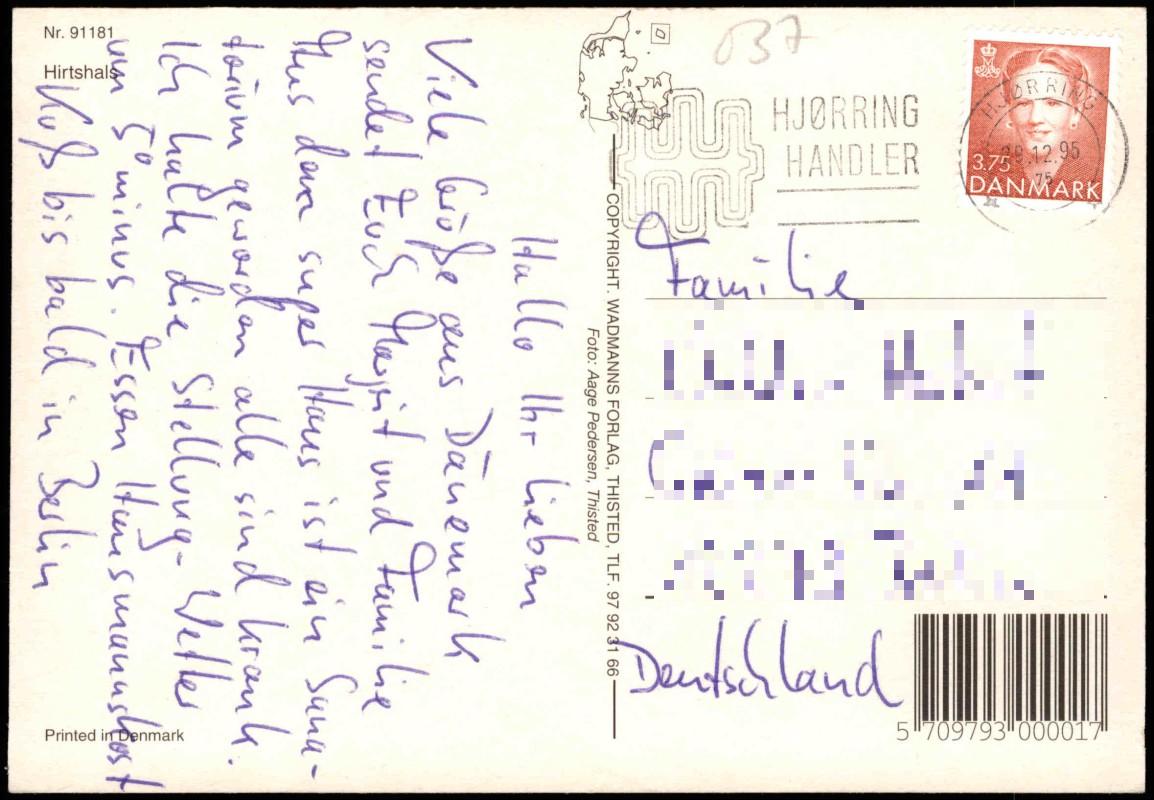 Nr. 91181
Hirtshals
Hallo Ihr Lieben
Viele Grüße aus Dänemark
sendet Euch Margrit und Familie
Aus dem super Haus ist ein Sana-
torium geworden alle sind krank.
Ich halte die Stellung - Wetter
um 5° minus. Essen Hausmannskost
Kuß bis bald in Berlin
Printed in Denmark
COPYRIGHT. WADMANNS FORLAG, THISTED, TLF. 97 92 31 66
Foto: Aage Pedersen, Thisted
037
HJØRRING
HANDLER
HJØRRING
.12.95
75
3.75
DANMARK
Familie
Deutschland
5 709793 000017